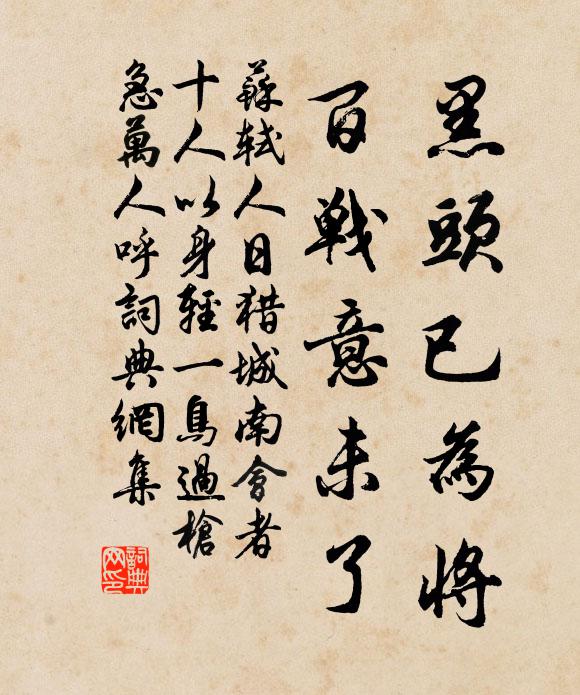 黑頭已為將
百戰意未了
蘇軾人日猎城南會者
十人以身輕一鳥過槍
急萬人呼詞典網集
詞典网印